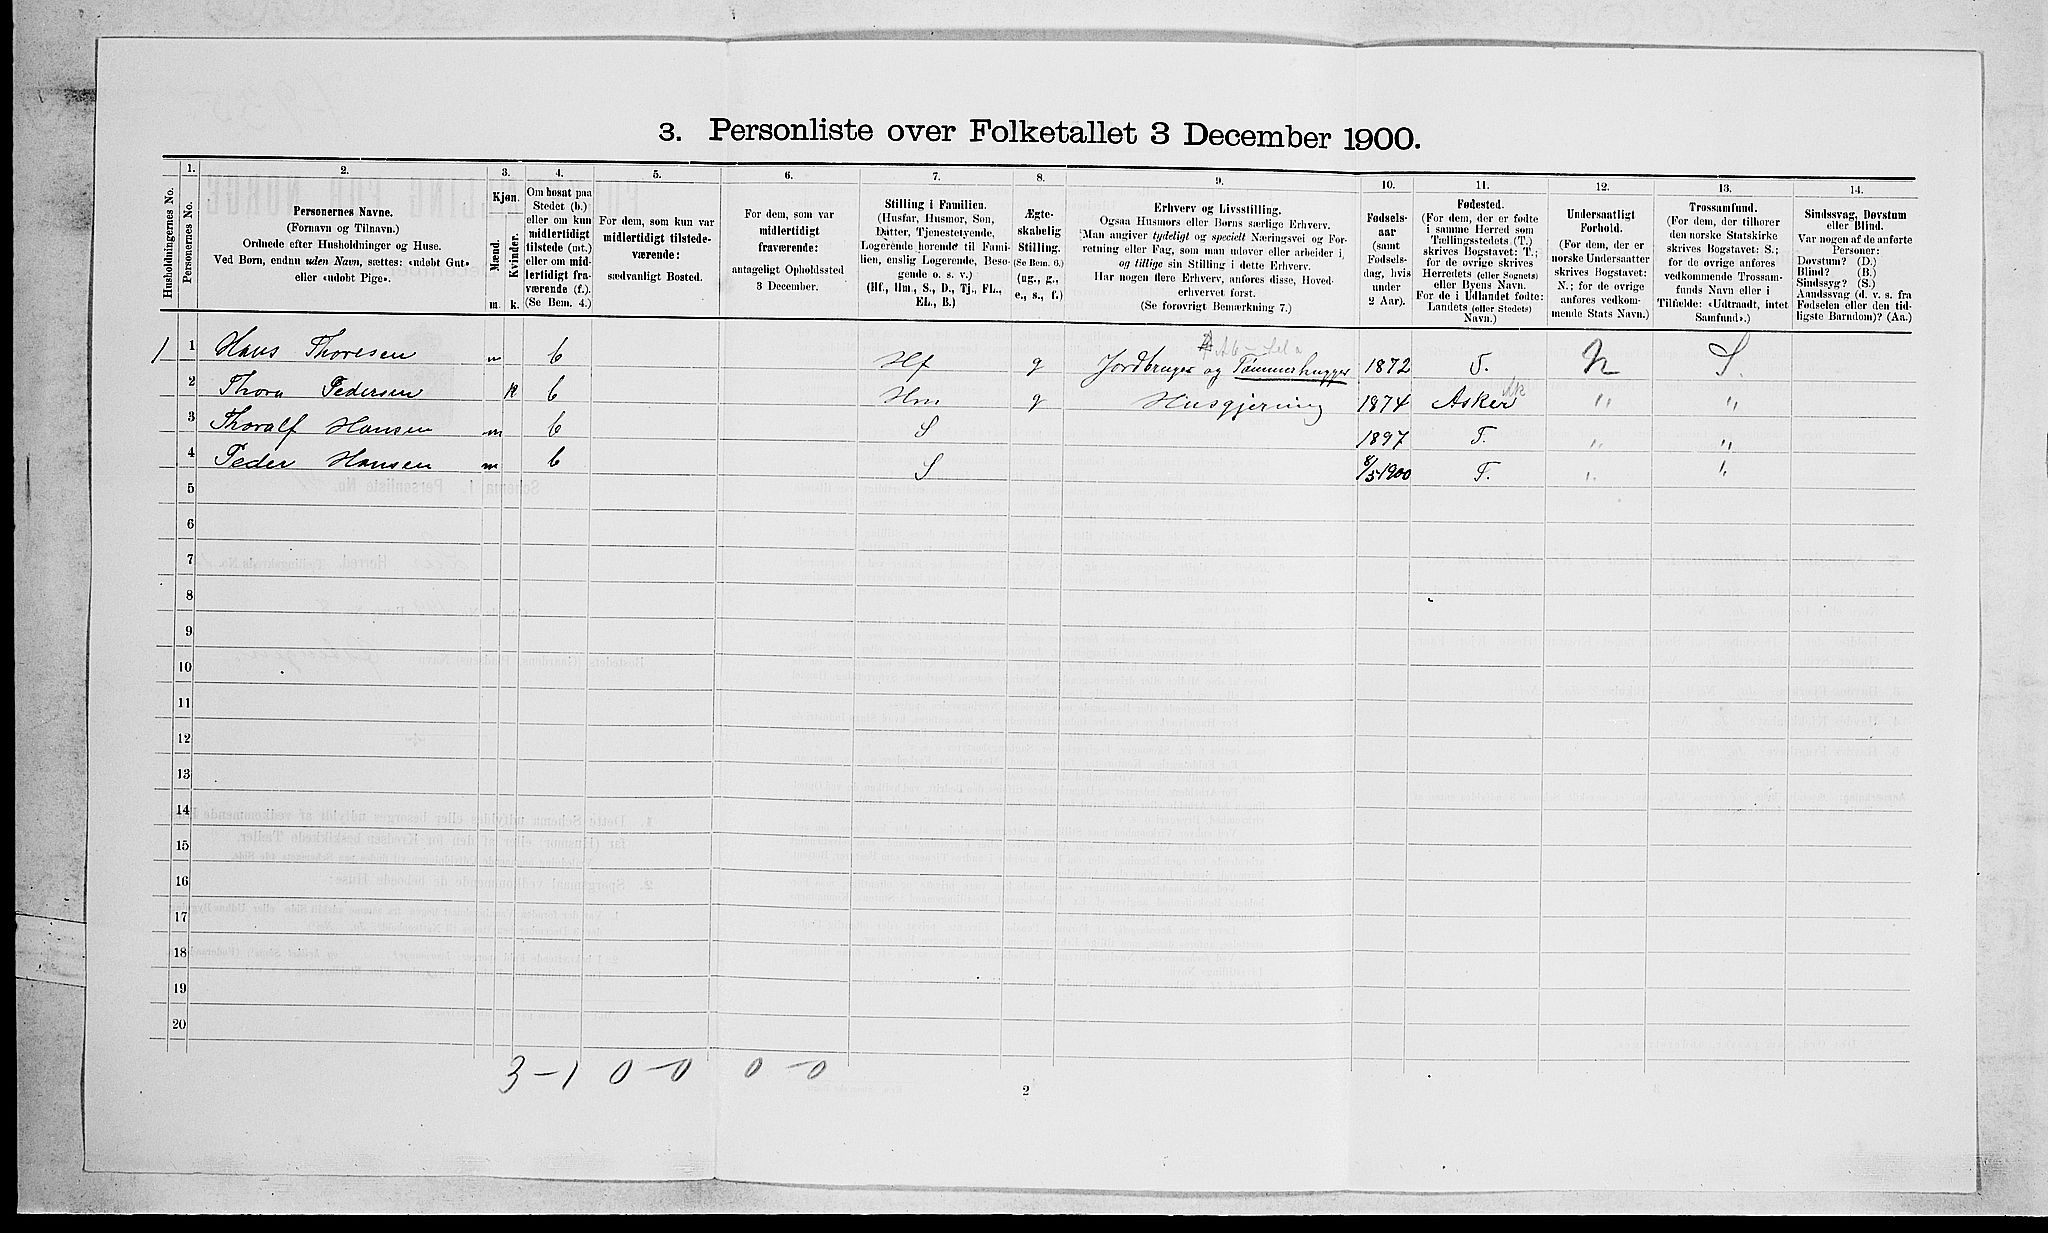 3. Personliste over Folketallet 3 December 1900.
Husholdningernes No.
1.
Personernes No.
2.
Personernes Navne.
(Fornavn og Tilnavn.)
Ordnede efter Husholdninger og Huse.
Ved Børn, endnu uden Navn, sættes: «udøbt Gut»
eller «udøbt Pige».
3.
Kjøn.
Mænd.
Kvinder.
m.
k.
4.
Om bosat paa
Stedet (b.)
eller om kun
midlertidigt
tilstede (mt.)
eller om mid-
lertidigt fra-
værende (f.).
(Se Bem. 4.)
5.
For dem, som kun var
midlertidigt tilstede-
værende:
sædvanligt Bosted.
6.
For dem, som var
midlertidigt
fraværende:
antageligt Opholdssted
3 December.
7.
Stilling i Familien.
(Husfar, Husmor, Søn,
Datter, Tjenestetyende,
Logerende hørende til Fami-
lien, enslig Logerende, Besø-
gende o. s. v.)
(Hf., Hm., S., D., Tj., FL.,
EL., B.)
8.
Ægte-
skabelig
Stilling.
(Se Bem. 6.)
(ug., g.,
e., s., f.)
9.
Erhverv og Livsstilling.
Ogsaa Husmors eller Børns særlige Erhverv.
Man angiver tydeligt og specielt Næringsvei og For-
retning eller Fag, som man udøver eller arbeider i,
og tillige sin Stilling i dette Erhverv.
Har nogen flere Erhverv, anføres disse, Hoved-
erhvervet først.
(Se forøvrigt Bemærkning 7.)
10.
Fødsels-
aar
(samt
Fødsels-
dag, hvis
under
2 Aar).
11.
Fødested.
(For dem, der er fødte
i samme Herred som
Tællingsstedets (T.)
skrives Bogstavet: T.;
for de øvrige skrives
Herredets (eller Sognets)
eller Byens Navn.
For de i Udlandet fødte:
Landets (eller Stedets)
Navn.)
12.
Undersaatligt
Forhold.
(For dem, der er
norske Undersaatter
skrives Bogstavet:
N.; for de øvrige
anføres vedkom-
mende Stats Navn.)
13.
Trossamfund.
(For dem, der tilhører
den norske Statskirke
skrives Bogstavet: S.;
for de øvrige anføres
vedkommende Trossam-
funds Navn eller i
Tilfælde: «Udtraadt, intet
Samfund».)
14.
Sindssvag, Døvstum
eller Blind.
Var nogen af de anførte
Personer:
Døvstum? (D.)
Blind? (B.)
Sindssyg? (S.)
Aandssvag (d. v. s. fra
Fødselen eller den tid-
ligste Barndom)? (Aa.)
1 1 Hans Thoresen m b Hf g Jordbruger og Tømmerhugger 1872 T. N S.
2 Thora Pedersen k b Hm g Husgjerning 1874 Asker " "
3 Thoralf Hansen m b S 1897 T. " "
4 Peder Hansen m b S 8/5 1900 T. " "
5
6
7
8
9
10
11
12
13
14
15
16
17
18
19
20
3 – 1 0 – 0 0 – 0
2